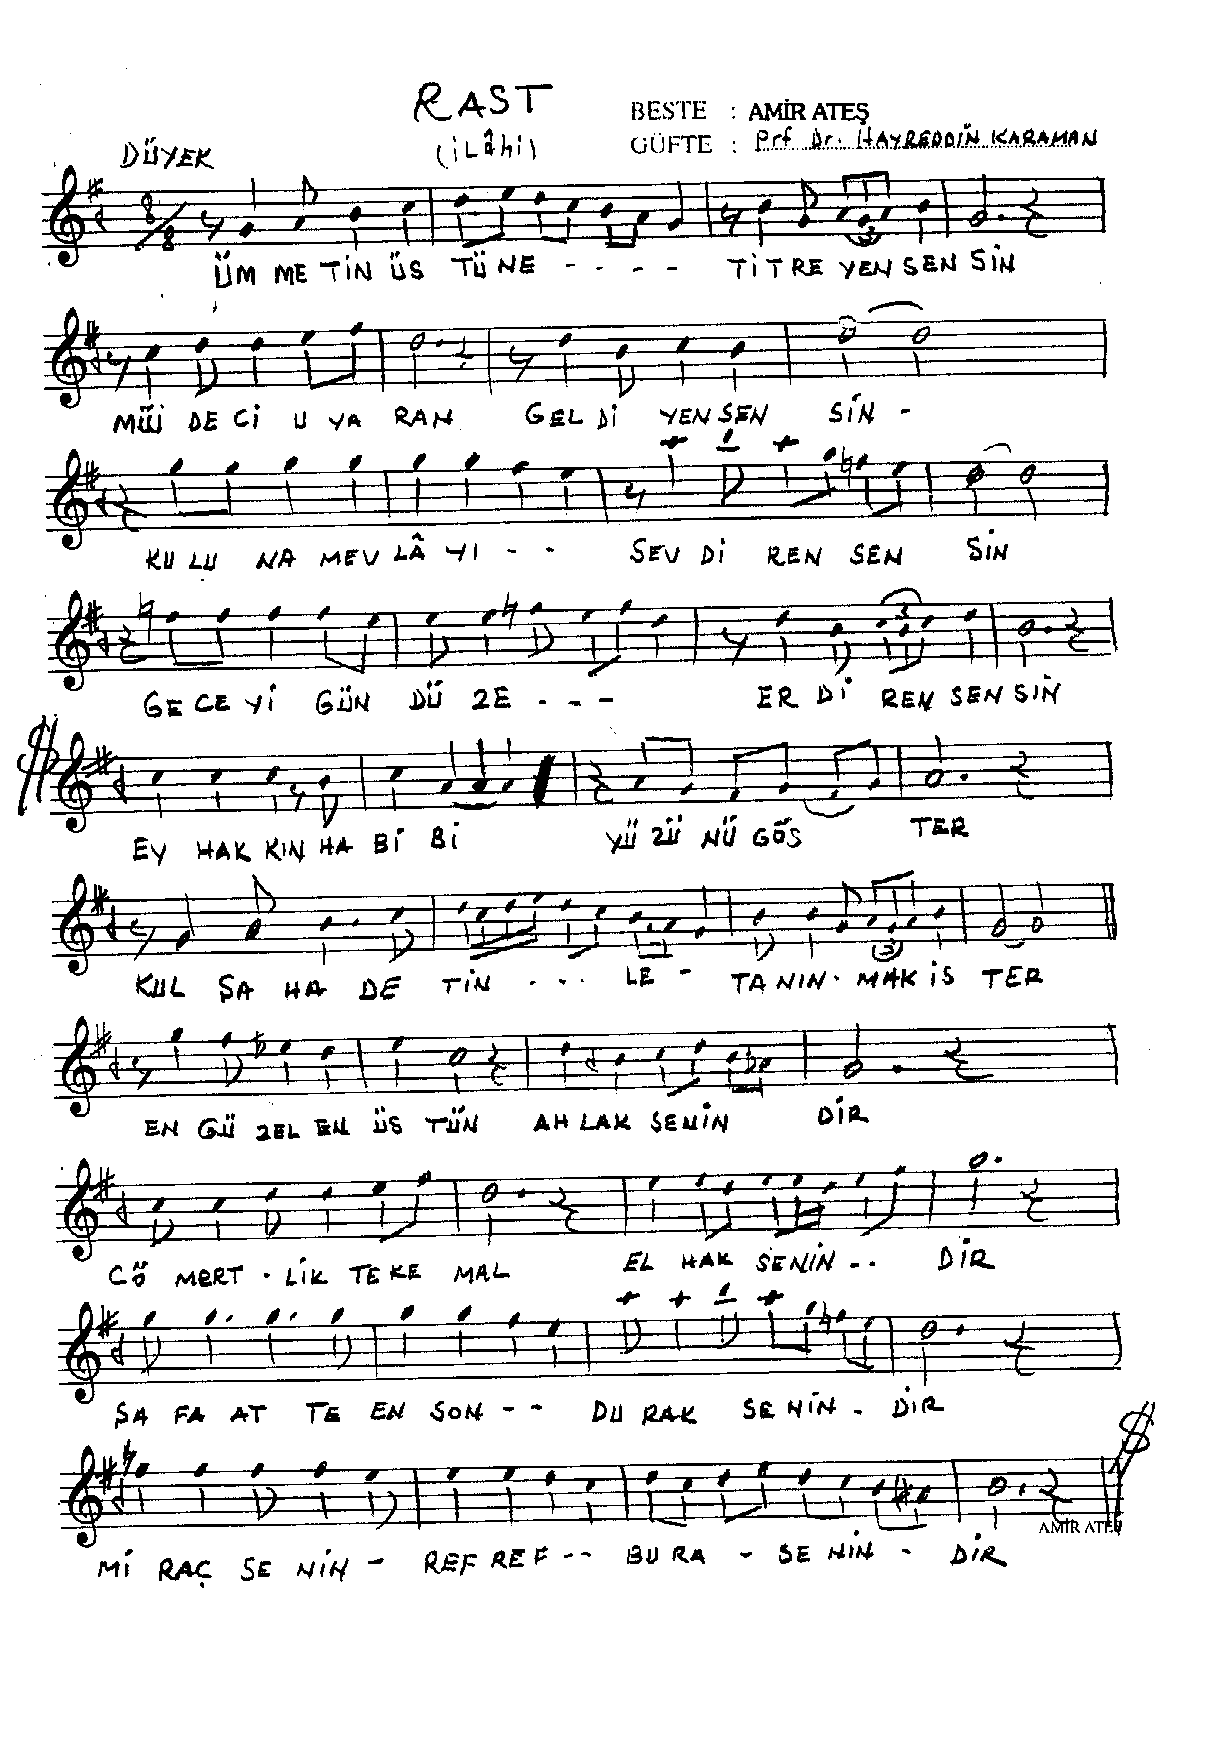 RAST
BESTE : AMİR ATEŞ
(İLâhi)
GÜFTE : Prf Dr. HAYREDDİN KARAMAN
DÜYEK
8/8
ÜM ME TİN ÜS TÜ NE - - - - TİT RE YEN SEN SİN
MÜJ DE Cİ U YA RAN GEL Dİ YEN SEN SİN -
KU LU NA MEV LÂ YI - - SEV Dİ REN SEN SİN
3
GE CE Yİ GÜN DÜ ZE - - - ER Dİ REN SEN SİN
EY HAK KIN HA Bİ Bİ YÜ ZÜ NÜ GÖS TER
KUL ŞA HA DE TİN - - - LE - TA NIN - MAK İS TER
EN GÜ ZEL EN ÜS TÜN AH LAK SENİN DİR
CÖ MERT - LİK TE KE MAL EL HAK SENİN - - DİR
ŞA FA AT TE EN SON - - DU RAK SE NİN - DİR
AMİR ATEŞ
Mİ RAÇ SE NİN - REF REF - - BU RA - SE NİN - DİR